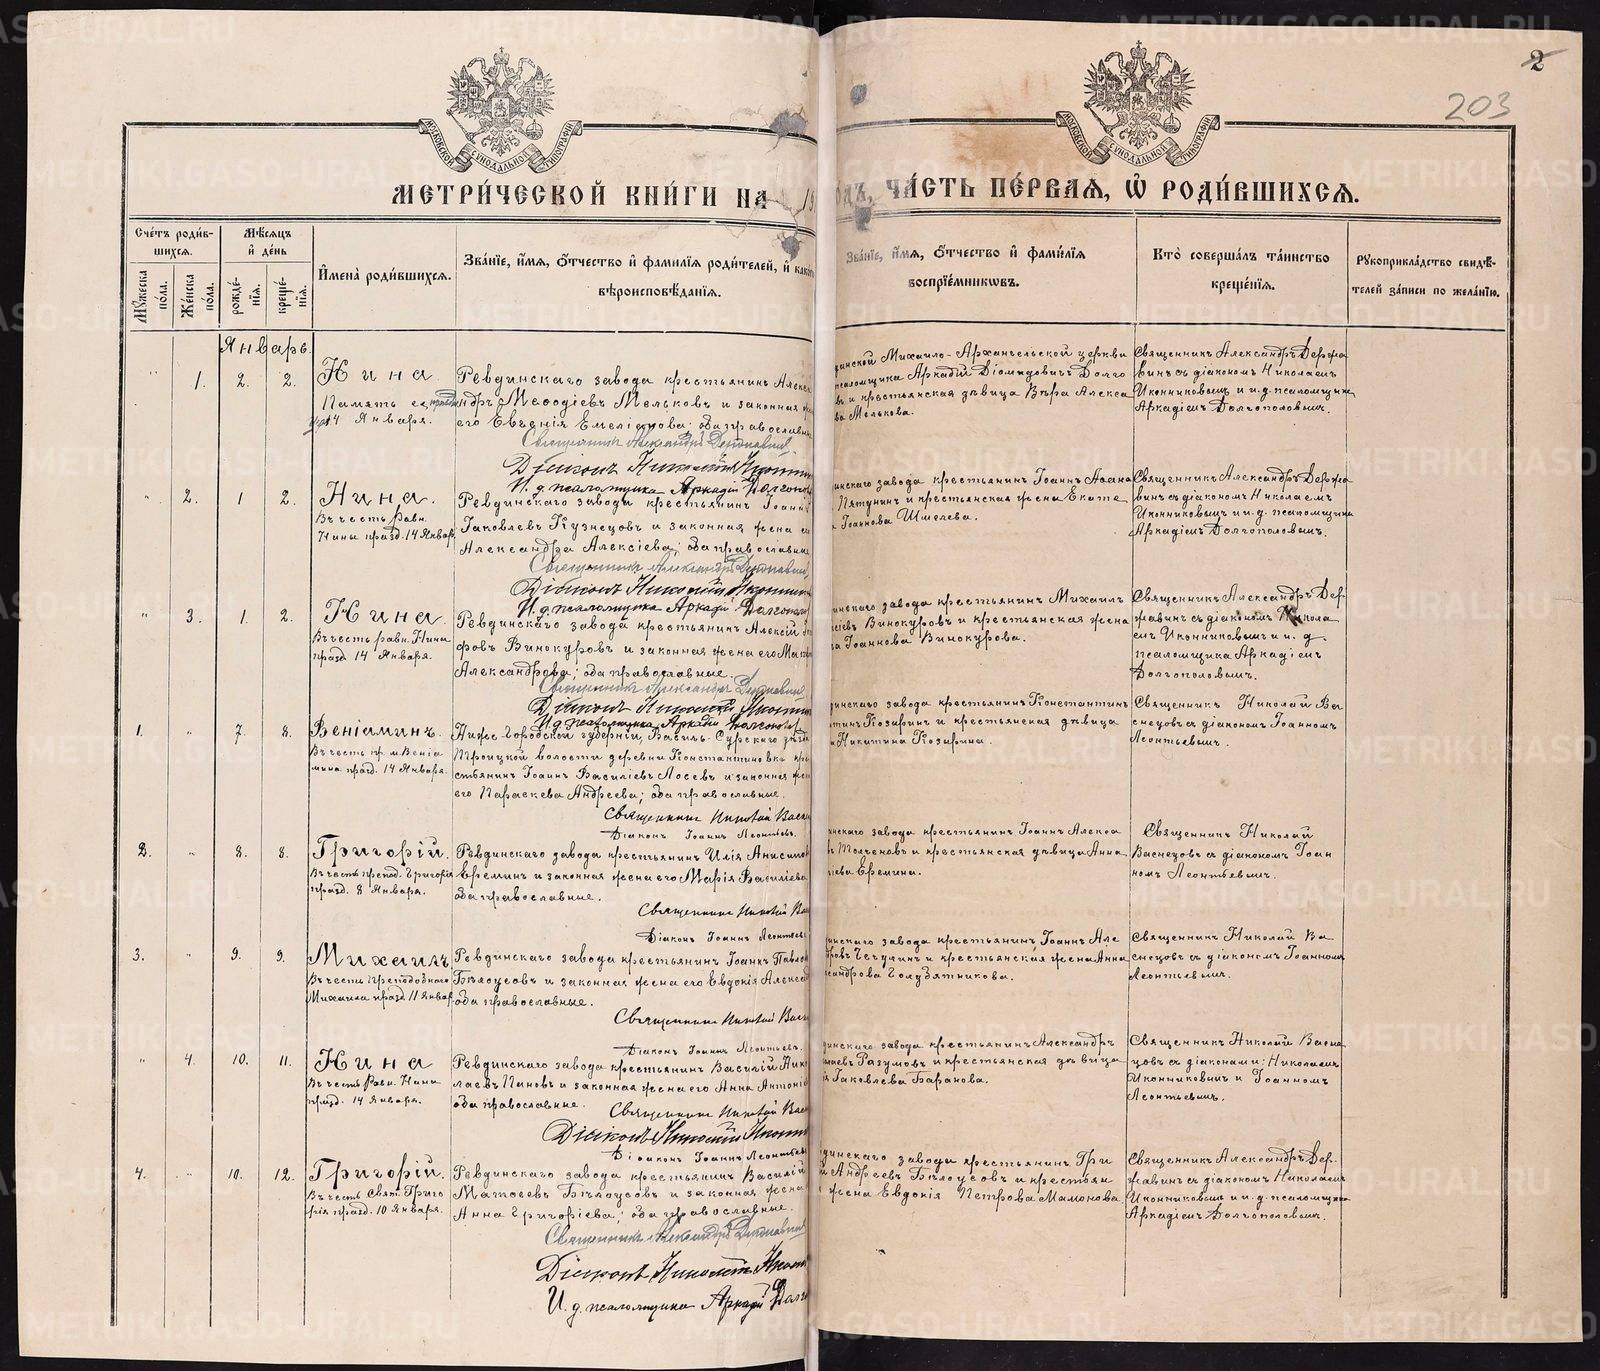 2
203
МОСКОВСКОЙ СѴНОДАЛЬНОЙ ТИПОГРАФІИ
МОСКОВСКОЙ СѴНОДАЛЬНОЙ ТИПОГРАФІИ
МЕТРИ́ЧЕСКОЙ КНИ́ГИ НА 19
ОДЪ, ЧА́СТЬ ПЕ́РВАѦ, Ѡ҆ РОДИ́ВШИХСѦ.
Сче́тъ роди́в-
шихсѧ.
Мѣ́сѧцъ
и҆ де́нь
Мꙋ́жеска по́ла.
Же́нска по́ла.
рожде́нїѧ.
креще́нїѧ.
И҆мена̀ роди́вшихсѧ.
Зва́нїе, и҆́мѧ, ѻ҆́тчество и҆ фами́лїѧ роди́телей, и҆ како
вѣроисповѣ́данїѧ.
Зва́нїе, и҆́мѧ, ѻ҆́тчество и҆ фами́лїѧ
воспрїе́мникѡвъ.
Кто̀ соверша́лъ та́инство
креще́нїѧ.
Рꙋкоприкла́дство свидѣ́-
телей за́писи по жела́нїю.
Январь.
1. 2. 2. Нина
Память ея праздн.
14 Января.
Ревдинскаго завода крестьянинъ Алекса
ндръ Меѳодіевъ Мельковъ и законная
его Евгенія Емеліанова; оба православн
Священникъ Александръ Державинъ
Діаконъ Николай Иконни
И. д. псаломщика Аркадій Долгопол
динской Михаило-Архангельской церкви
псаломщика Аркадій Діомидовичъ Долго
въ и крестьянская дѣвица Вѣра Алекса
ва Мелькова.
Священникъ Александръ Держа
винъ съ діакономъ Николаемъ
Иконниковымъ и и. д. псаломщика
Аркадіемъ Долгополовымъ.
2. 1 2. Нина.
Въ честь равн.
Нины празд. 14 Январ.
Ревдинскаго завода крестьянинъ Іоаннъ
Іаковлевъ Кузнецовъ и законная жена е
Александра Алексіева; оба православные
Священникъ Александръ Державинъ
Діаконъ Николай Иконник
И. д. псаломщика Аркадій Долгопол
инскаго завода крестьянинъ Іоаннъ Аѳана
Пятунинъ и крестьянская жена Екате
Іоаннова Шмелева.
Священникъ Александръ Держа
винъ съ діакономъ Николаемъ
Иконниковымъ и и. д. псаломщика
Аркадіемъ Долгополовымъ.
3. 1. 2. Нина
Въ честь равн. Нины
празд. 14 Января.
Ревдинскаго завода крестьянинъ Алексій
фовъ Винокуровъ и законная жена его Ма
Александрова; оба православные.
Священникъ Александръ Державинъ
Діаконъ Николай Иконни
И. д. псаломщика Аркадій Долгопол
инскаго завода крестьянинъ Михаилъ
Винокуровъ и крестьянская жена
на Іоаннова Винокурова.
Священникъ Александръ Дер-
жавинъ съ діакономъ Никола
емъ Иконниковымъ и и. д.
псаломщика Аркадіемъ
Долгополовымъ.
1. 7. 8. Веніаминъ.
Въ честь пр. м. Веніа
мина празд. 14 Января.
Нижегородской губерніи, Василь-Сурскаго уѣзда
Троицкой волости деревни Константиновка кре
стьянинъ Іоаннъ Василіевъ Лосевъ и законная же
его Параскева Андреева; оба православные.
Священникъ Николай Васн
Діаконъ Іоаннъ Леонтьевъ.
динскаго завода крестьянинъ Константинъ
тинъ Козыринъ и крестьянская дѣвица
Никитина Козырина.
Священникъ Николай Ва
снецовъ съ діакономъ Іоанномъ
Леонтьевымъ.
2. 8. 8. Григорій.
Въ честь препод. Григорія
празд. 8 Января.
Ревдинскаго завода крестьянинъ Илія Анисимов
Ереминъ и законная жена его Марія Василіева
оба православные.
Священникъ Николай Вас
Діаконъ Іоаннъ Леонтьев
инскаго завода крестьянинъ Іоаннъ Алекса
въ Толченовъ и крестьянская дѣвица Анна
іева Еремина.
Священникъ Николай
Васнецовъ съ діакономъ Іоан
номъ Леонтьевымъ.
3. 9. 9. Михаилъ
Въ честь Преподобнаго
Михаила празд. 11 Январ.
Ревдинскаго завода крестьянинъ Іоаннъ Павло
Бѣлоусовъ и законная жена его Евдокія Алекса
оба православные.
Священникъ Николай Васн
Діаконъ Іоаннъ Леонтьевъ.
инскаго завода крестьянинъ Іоаннъ Але
дровъ Чечулинъ и крестьянская жена Анна
сандрова Голубятникова.
Священникъ Николай Ва
снецовъ съ діакономъ Іоанномъ
Леонтьевымъ.
4. 10. 11. Нина
Въ честь Равн. Нины
празд. 14 Января.
Ревдинскаго завода крестьянинъ Василій Ник
лаевъ Пановъ и законная жена его Анна Антоні
оба православные.
Священникъ Николай Вас
Діаконъ Николай Иконн
Діаконъ Іоаннъ Леонтьев
динскаго завода крестьянинъ Александръ
лаевъ Разумовъ и крестьянская дѣвица
Іаковлева Баранова.
Священникъ Николай Васне
цовъ съ діаконами: Николаемъ
Иконниковымъ и Іоанномъ
Леонтьевымъ.
4. 10. 12. Григорій.
Въ честь Свят. Григо
рія празд. 10 Января.
Ревдинскаго завода крестьянинъ Василій
Матѳеевъ Бѣлоусовъ и законная жена
Анна Григоріева; оба православные.
Священникъ Александръ Державинъ
Діаконъ Николай Иконн
И. д. псаломщика Аркадій Долг
динскаго завода крестьянинъ Гри
й Андреевъ Бѣлоусовъ и крестьян
жена Евдокія Петрова Мамонова
Священникъ Александръ Дер-
жавинъ съ діакономъ Николаемъ
Иконниковымъ и и. д. псаломщика
Аркадіемъ Долгополовымъ.
METRIKI.GASO-URAL.RU